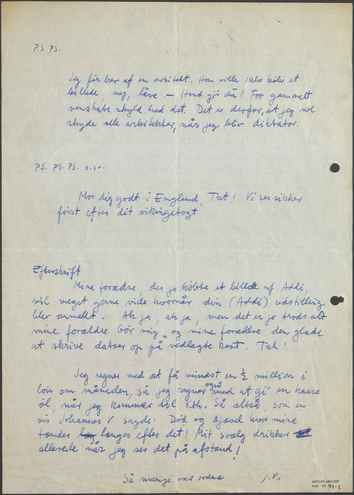 P.S. P.S.
Jeg får bar af en arkitekt. Han ville ikke købe et
billede, nej, låve — Hvad gør du! For gammelt
venskabs skyld hvad det. Dit er derfor, at jeg vil
skyde alle arkitekter, når jeg blir diktator.
P.S. P.S. P.S. o.s.v.
Mor dig godt i England, Tut! Vi ses sikker
først efter dit vikingetogt
Efterskrift
Mine forældre, der jo købte et billede af Addi,
vil meget gerne vide hvornår din (Addi) udstilling
blev anmeldt. Ak ja, ak ja, men det er jo trods alt
mine forældre bør mig, og mine forældre den glæde
at skrive datoer op på vedlagte kort. Tak!
Jeg regner med at få mindst en ½ million i
løn om måneden, så jeg regner også med at gi en kasse
øl når jeg kommer til Kbh. Så altså, som en
vis Johannes V. sagde: Død og djævel hvor mine
tænder længes efter det! Mit svælg drikker
allerede når jeg ser det på afstand!
Så mange var ordene